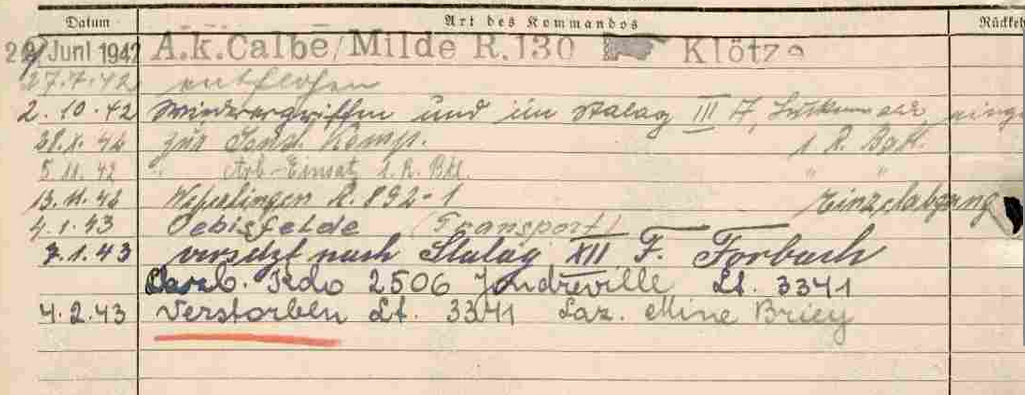 Datum Art des Kommandos Rückkeh
22 Juni 1942 A.k.Calbe/Milde R.130 Klötze
27.7.42 entflohen
2.10.42 Wiederergriffen und im Stalag III A, Luckenwalde, einge
28.X.42 zur Sond. Komp. 1 R. Batl.
5.11.42 " Arb-Einsatz 1. R. Btl. " "
13.11.42 Weferlingen R. 892-1 Einzelabgang
4.1.43 Oebisfelde (Transport)
7.1.43 versetzt nach Stalag XII F. Forbach
Kdo 2506 Joudreville Lt. 3341
4.2.43 Verstorben Lt. 3341 Laz. Mine Briey